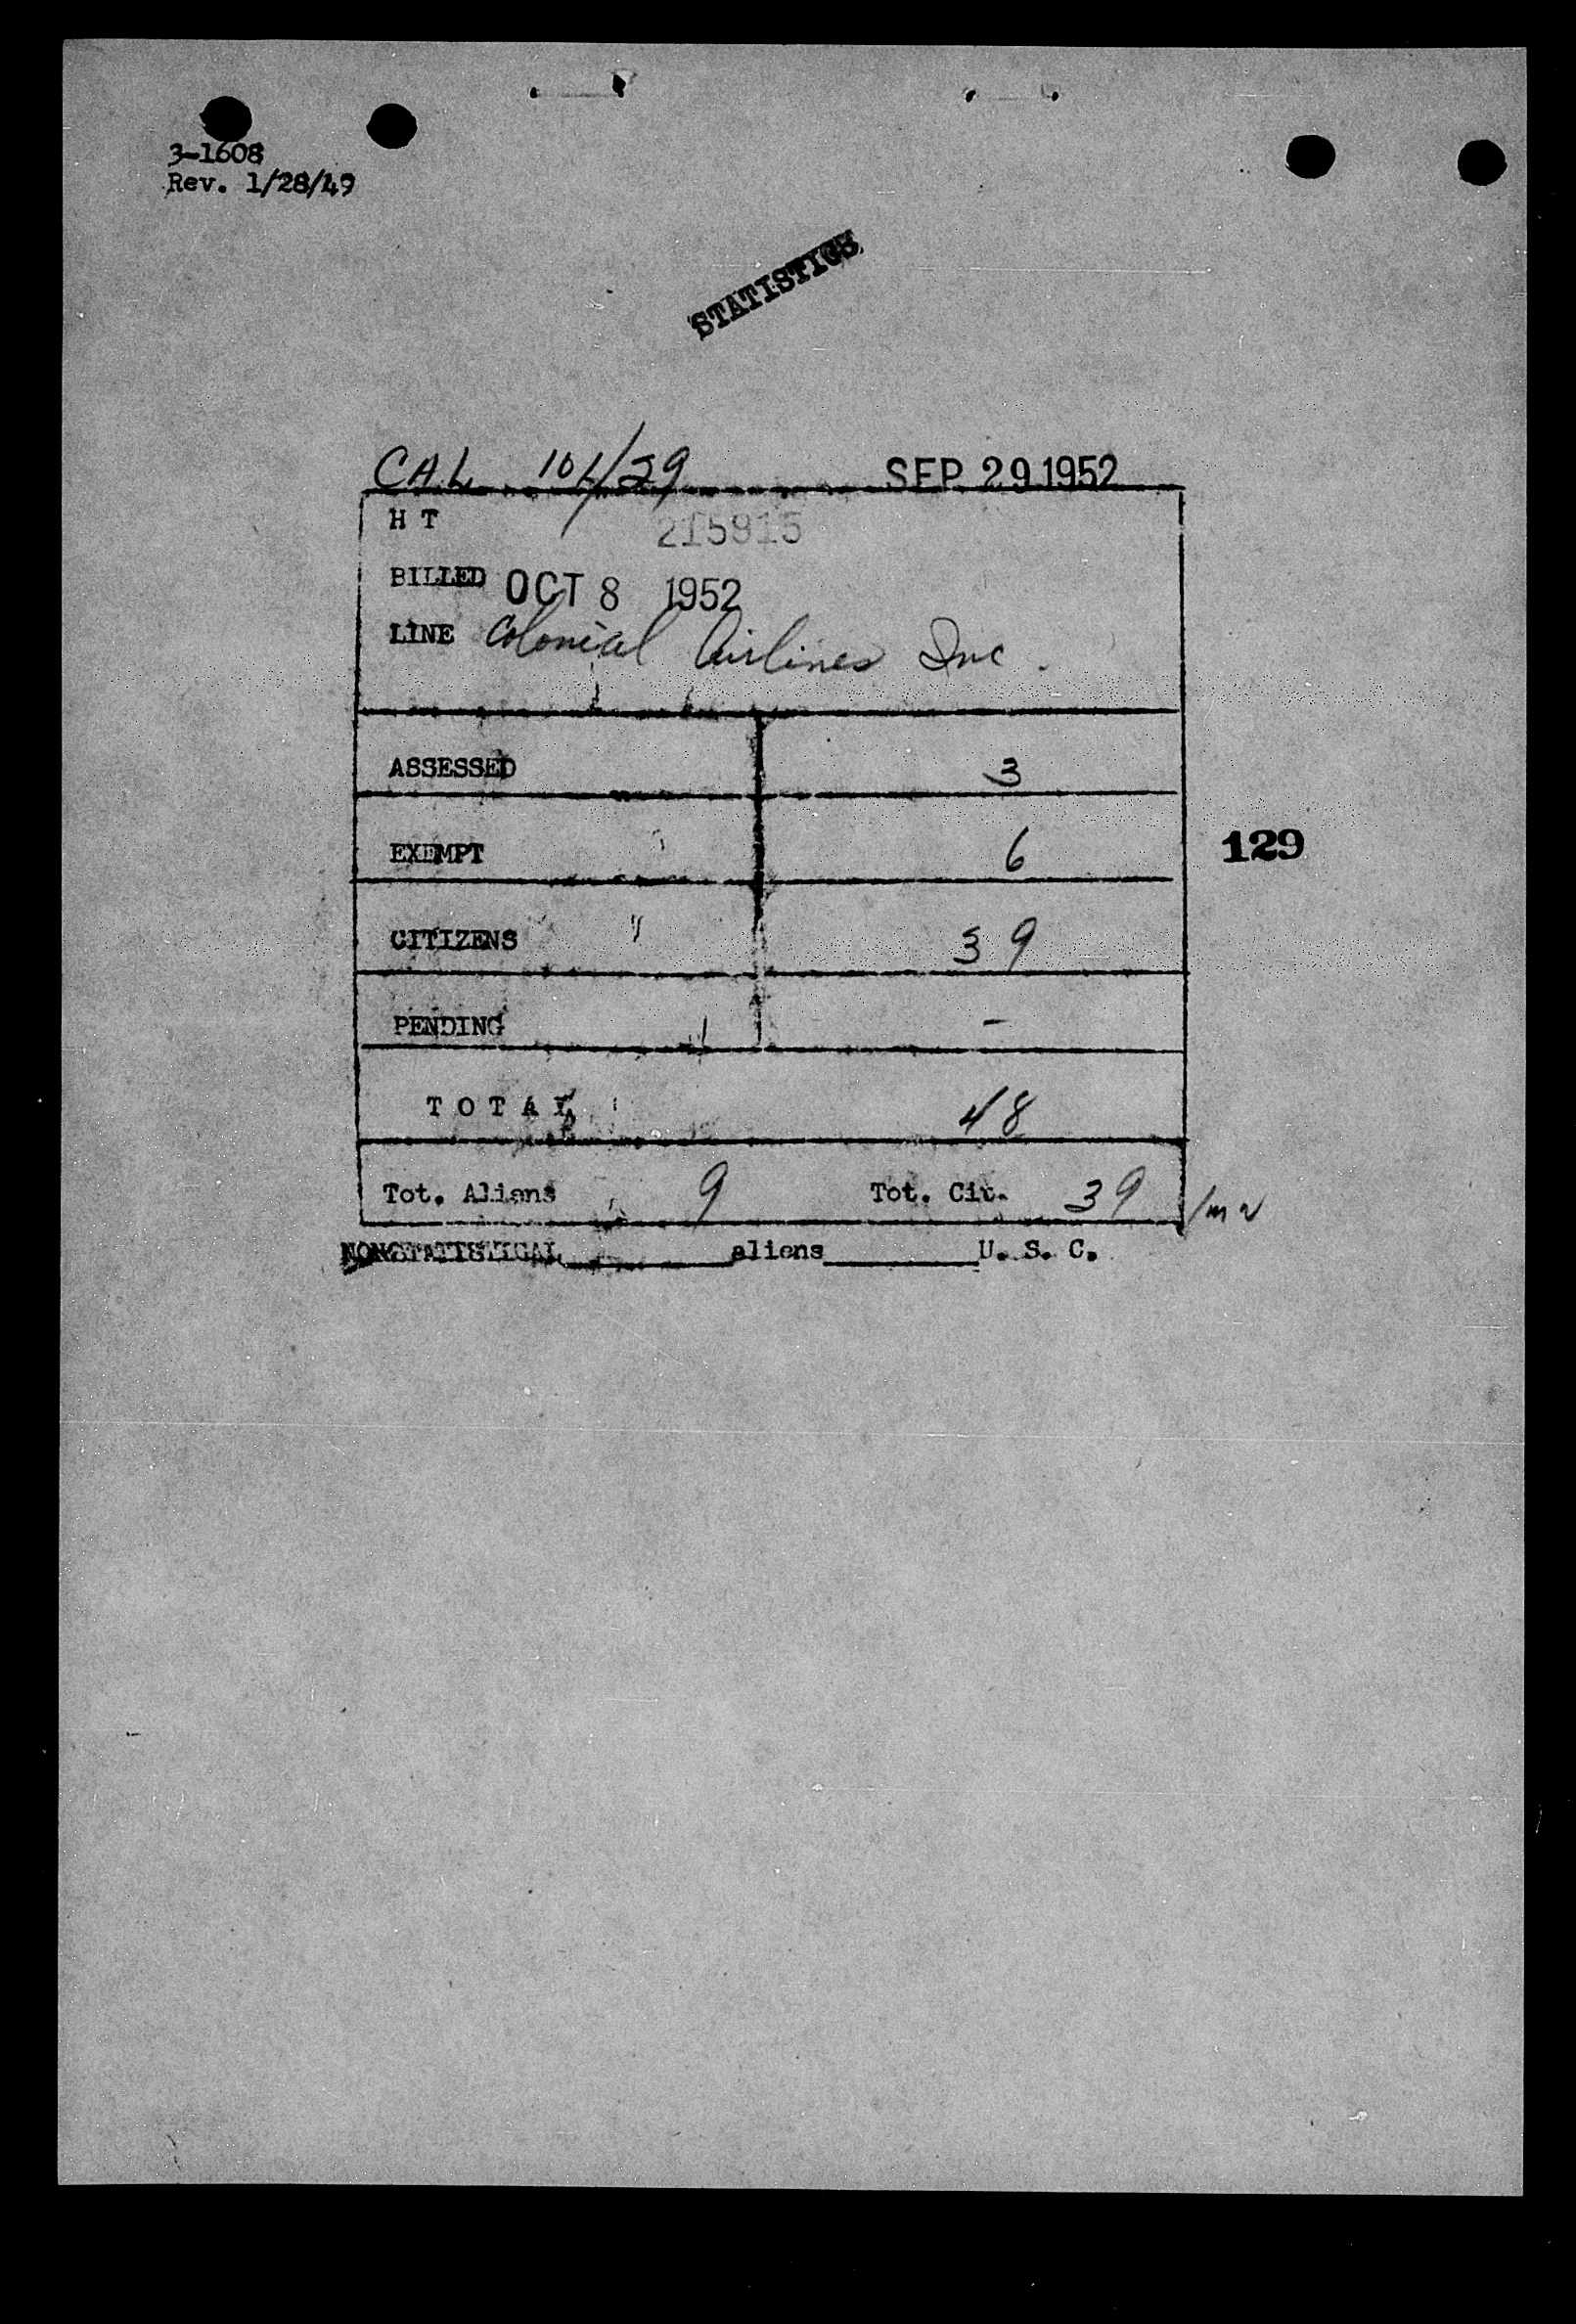 3-1608
Rev. 1/28/49
STATISTICS
CAL 104/29 SEP 29 1952
H T 215915
BILLED OCT 8 1952
LINE Colonial Airlines Inc.
ASSESSED 3
EXEMPT 6
129
CITIZENS 39
PENDING -
TOTAL 48
Tot. Aliens 9 Tot. Cit. 39
NONSTATISTICAL aliens U. S. C.